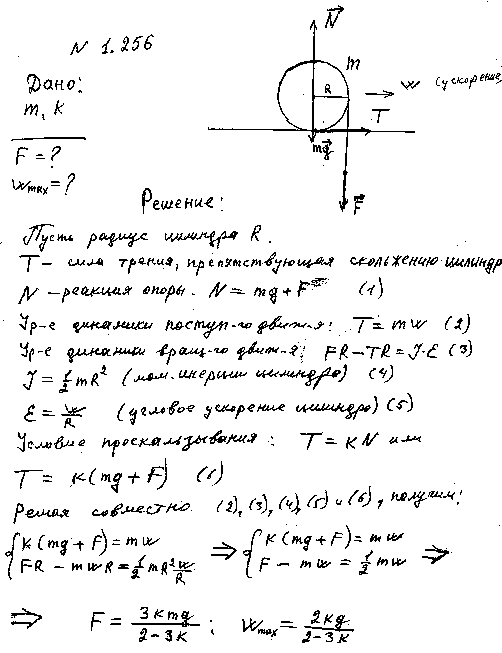 N 1.256
Дано:
m, k
F = ?
w_max = ?
N
m
R
w (ускорение
T
mg
F
Решение:
Пусть радиус цилиндра R.
T – сила трения, препятствующая скольжению цилиндр
N – реакция опоры. N = mg + F (1)
Ур-е динамики поступ-го движ-я: T = mw (2)
Ур-е динамики вращ-го движ-я: FR – TR = J·Ɛ (3)
J = 1/2 mR² (мом. инерции цилиндра) (4)
Ɛ = w/R (угловое ускорение цилиндра) (5)
Условие проскальзывания: T = kN или
T = k(mg + F) (6)
Решая совместно (2), (3), (4), (5) и (6), получим:
{ k(mg + F) = mw ⇒ { k(mg + F) = mw ⇒
FR – mwR = 1/2 mR² w/R F – mw = 1/2 mw
⇒ F = 3kmg/(2 – 3k); w_max = 2kg/(2 – 3k)